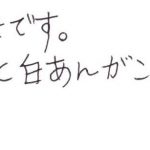 です。
と白あんがこ